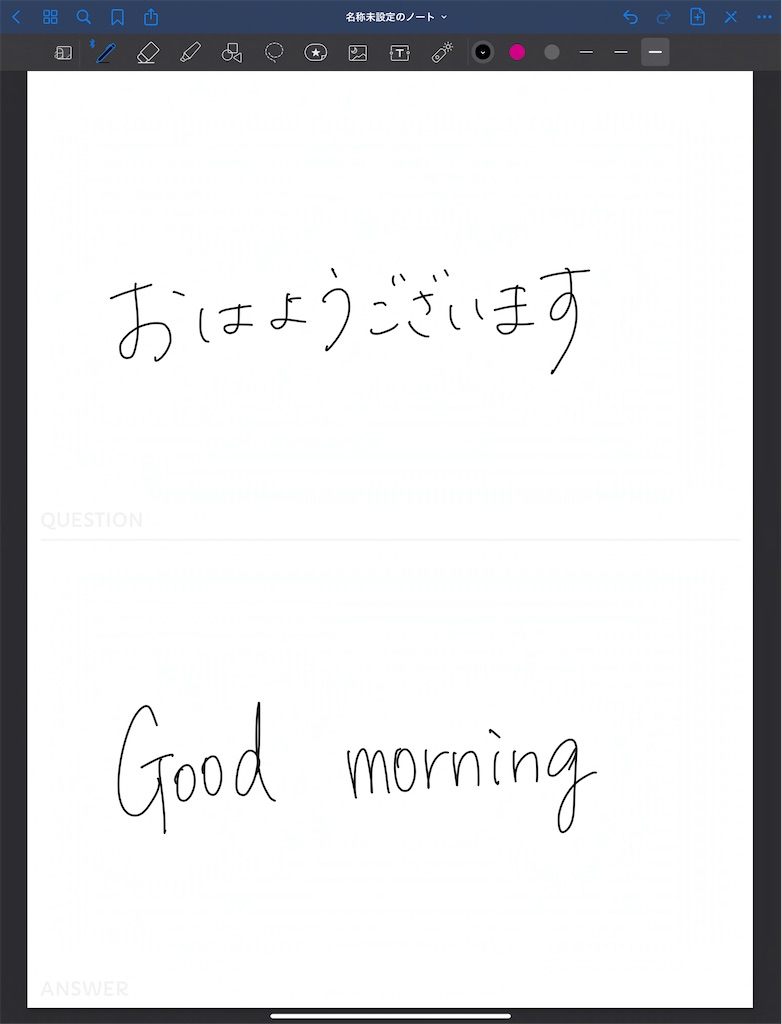 名称未設定のノート
おはようございます
QUESTION
Good morning
ANSWER